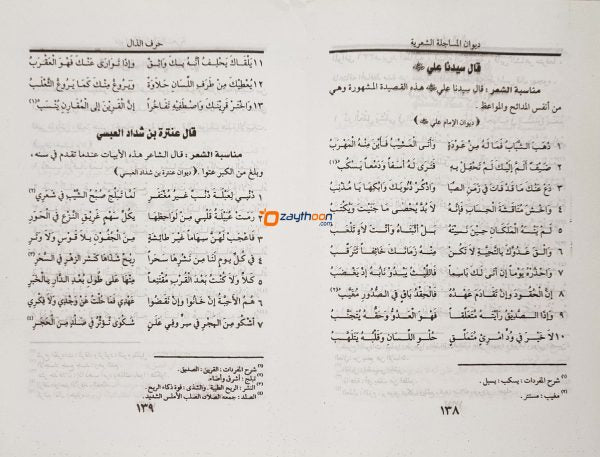 ديوان المساجلة الشعرية
قال سيدنا علي ﷺ
مناسبة الشعر : قال سيدنا علي ﷺ هذه القصيدة المشهورة وهي
من أنفس المدائح والمواعظ .
( ديوان الإمام علي ﷺ )
١ ذهب الشباب فما له من عودة وأتى المشيب فأين منه المهرب
٢ ضيف ألم إليك لم تحفل به فترى له أسفاً ودمعاً يسكب (١)
٣ دع عنك ما قد فات في زمن الصبا واذكر ذنوبك وابكها يا مذنب
٤ واخش مناقشة الحساب فإنه لا بد يحصى ما جنيت ويكتب
٥ لم ينسه الملكان حين نسيته بل أثبتاه وأنت لاه تلعب
٦ والق عدوك بالتحية لا تكن منه زمانك خائفاً تترقب
٧ واحذره يوماً إن أتى لك باسماً فالليث يبدو نابه إذ يغضب
٨ إن الحقود وإن تقادم عهده فالحقد باق في الصدور مغيب (٢)
٩ وإذا الصديق رأيته متعلقاً فهو العدو وحقه يتجنب
١٠ لا خير في ود امرئ متملق حلو اللسان وقلبه يتلهب
(١) شرح المفردات : يسكب : يسيل .
(٢) مغيب : مستتر .
١٣٨
حرف الذال
١١ يلقاك يحلف أنه بك واثق وإذا توارى عنك فهو العقرب
١٢ يعطيك من طرف اللسان حلاوة ويروغ منك كما يروغ الثعلب
١٣ واختر قرينك واصطفيه تفاخراً إن القرين إلى المقارن ينسب (١)
قال عنترة بن شداد العبسي
مناسبة الشعر : قال الشاعر هذه الأبيات عندما تقدم في سنه ،
وبلغ من الكبر عتوا . ( ديوان عنترة بن شداد العبسي )
١ ذنبي لعبلة ذنب غير مغتفر لما تبلج صبح الشيب في شعري (٢)
٢ رمت عبيلة قلبي من لواحظها بكل سهم غريق النزع في الحور
٣ فاعجب لهن سهاماً غير طائشة من الجفون بلا قوس ولا وتر
٤ كل يوم لنا من نشرها سحراً ريح شذاها كنشر الزهر في السحر
٥ كلا ولا كنت بعد القرب مقتنعاً منها على طول بعد الدار بالخبر
٦ هم الأحبة إن خانوا وإن نقضوا عهدي فما حلت عن وجدي ولا فكري
٧ أشكو من الهجر في سر وفي علن شكوى تؤثر في صلد من الحجر (٤)
(١) شرح المفردات : القرين : الصديق .
(٢) تبلج : أشرق وأضاء .
(٣) النشر : الريح الطيبة . والشذى : قوة ذكاء الريح .
(٤) الصلد : جمعه الصلاد الصلب الأملس الشديد .
١٣٩
zaythoon
.com